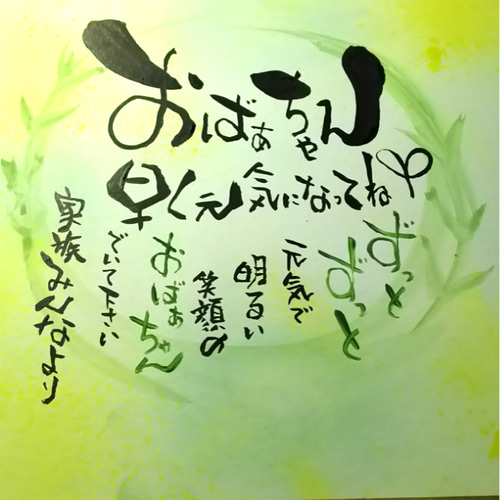 おばぁちゃん
早く元気になってね
ずっと
ずっと
元気で
明るい
笑顔の
おばぁちゃん
でいて下さい
家族みんなより